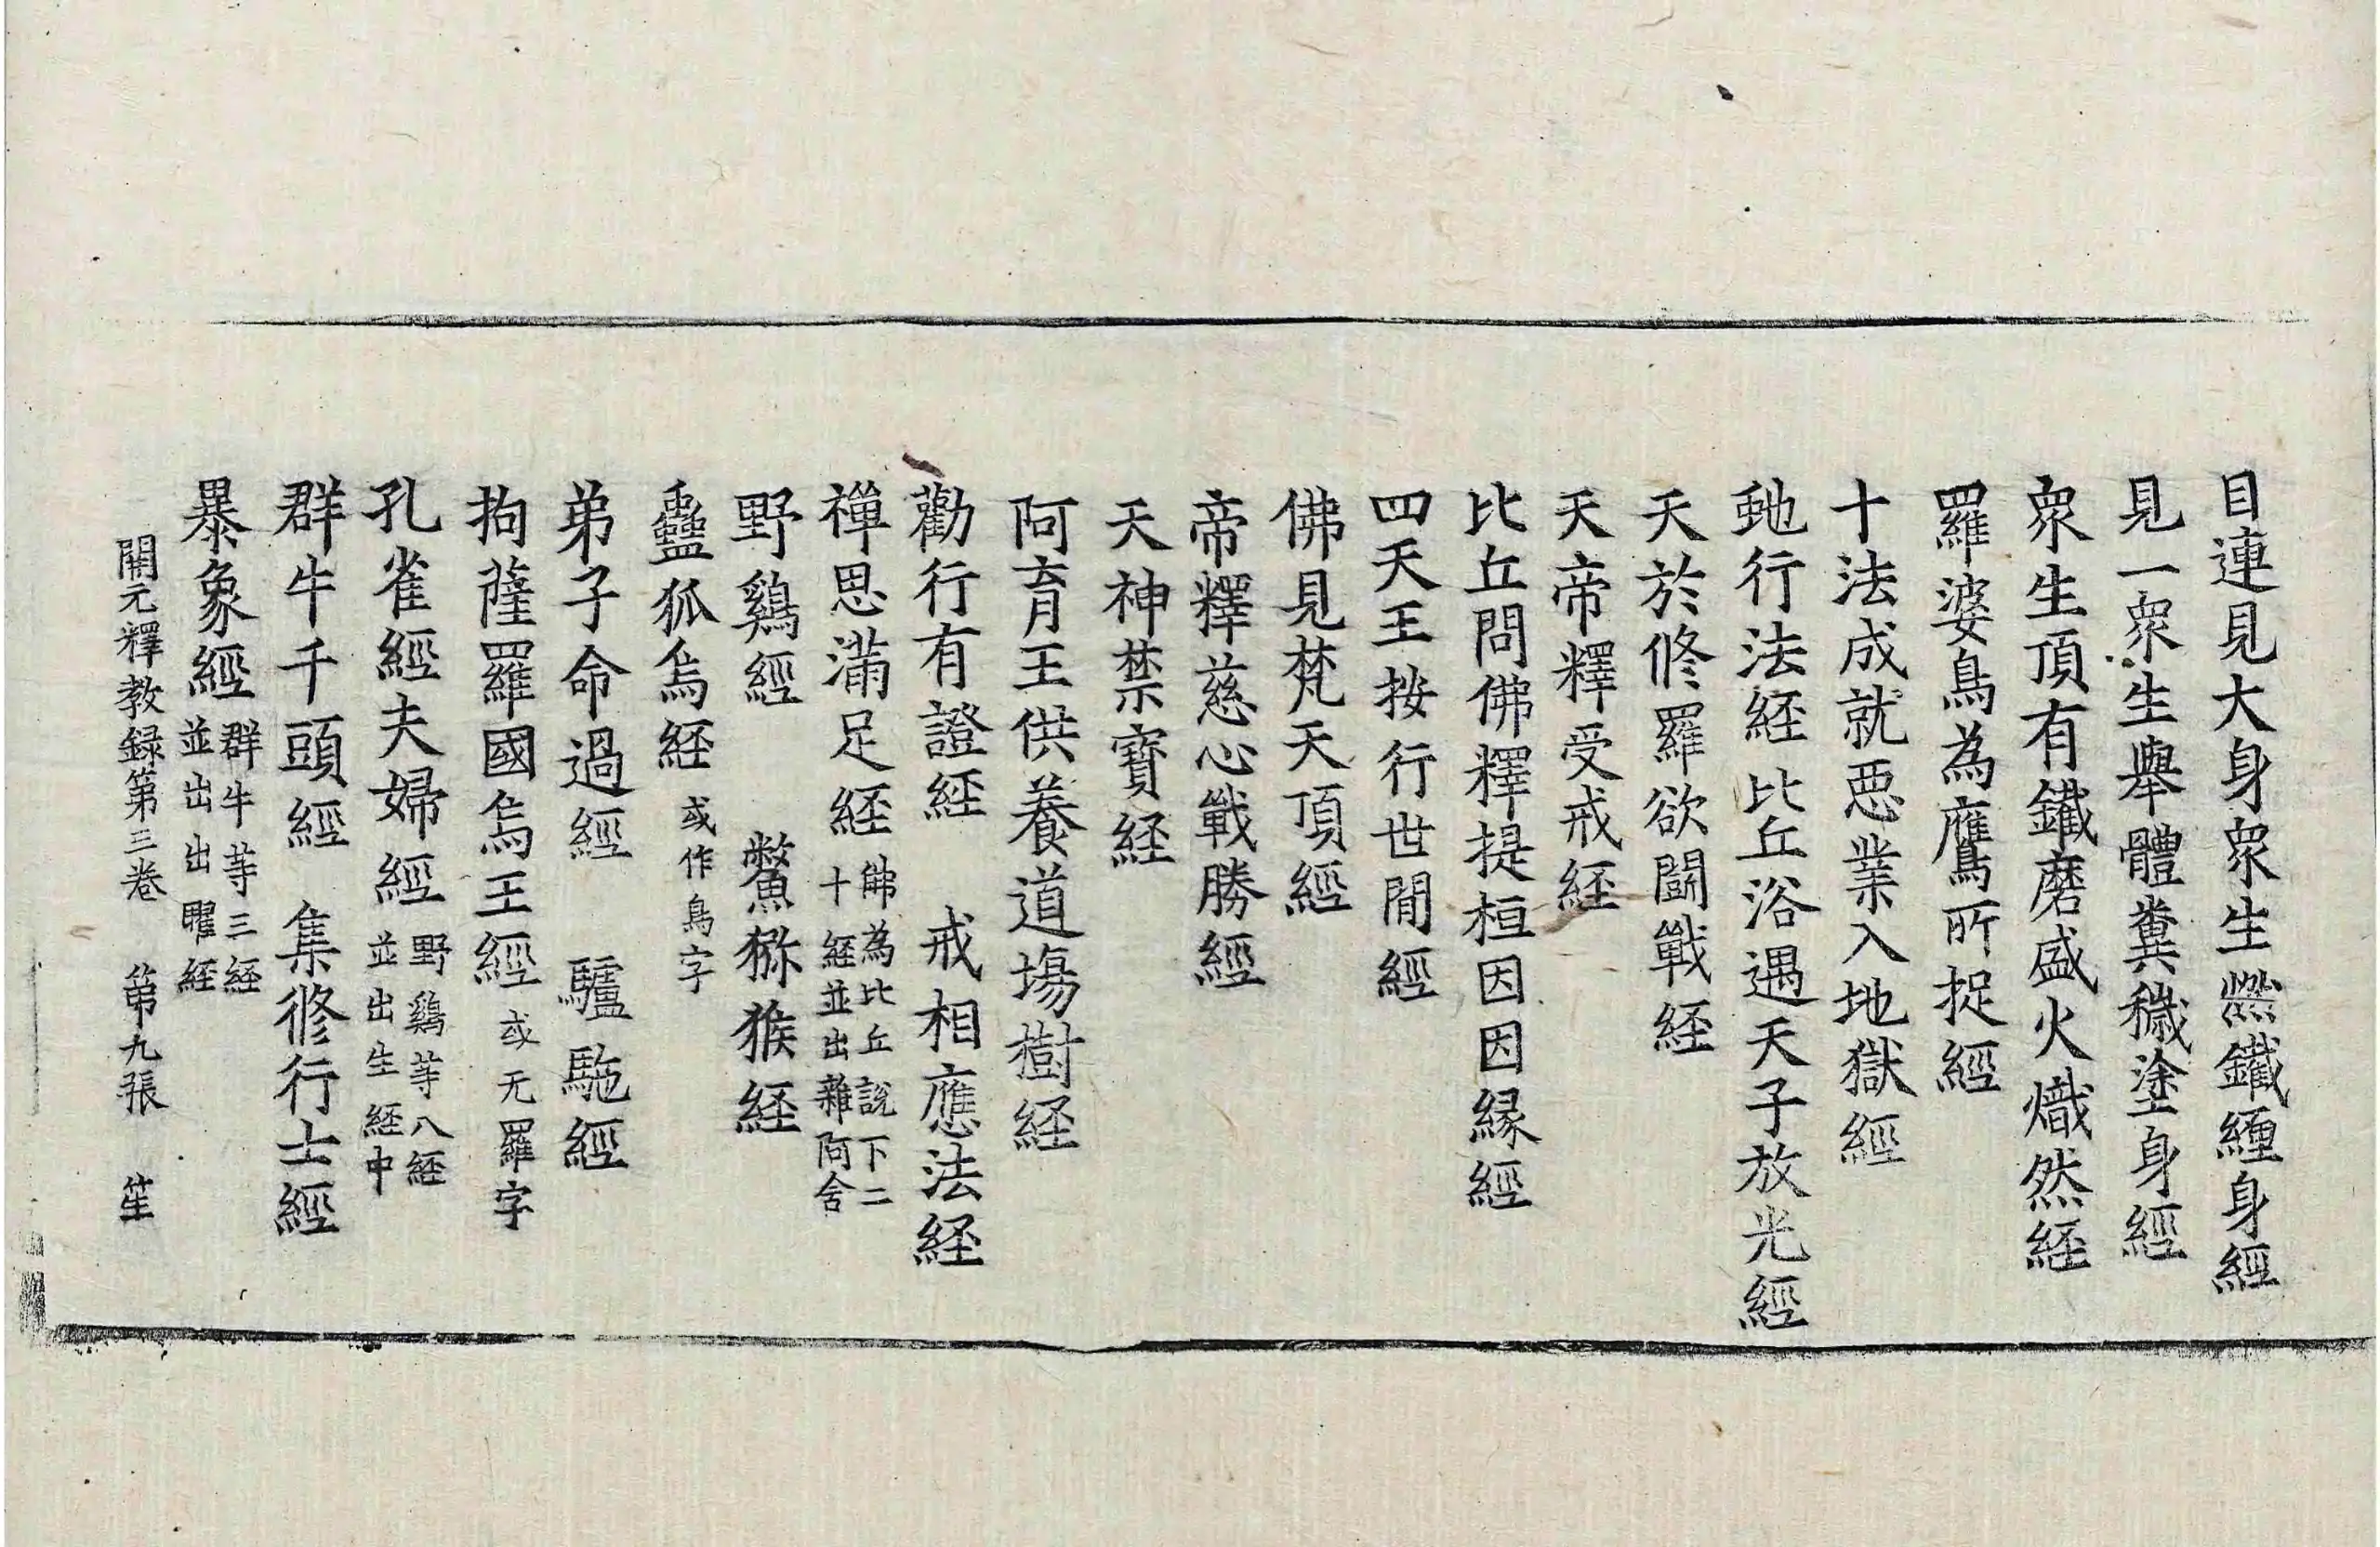 目連見大身衆生燃鐵纏身經
見一衆生舉體糞穢塗身經
衆生頂有鐵磨盛火熾然経
羅婆鳥為鷹所捉經
十法成就惡業入地獄經
虵行法経比丘浴遇天子放光經
天於修羅欲鬪戰経
天帝釋受戒経
比丘問佛釋提桓因因縁經
四天王按行世間經
佛見梵天頂經
帝釋慈心戰勝經
天神禁寶経
阿育王供養道場樹経
勸行有證経 戒相應法経
禪思滿足経 佛為比丘說下二
十経並出雜阿含
野鷄經 鱉獼猴経
蠱狐烏経 或作鳥字
弟子命過經 驢駞經
拘薩羅國烏王經 或无羅字
孔雀經夫婦經 野鷄等八経
並出生経中
群牛千頭經 集修行士經
暴象經 群牛等三経
並出出曜経
開元釋教録第三卷 第九張 笙